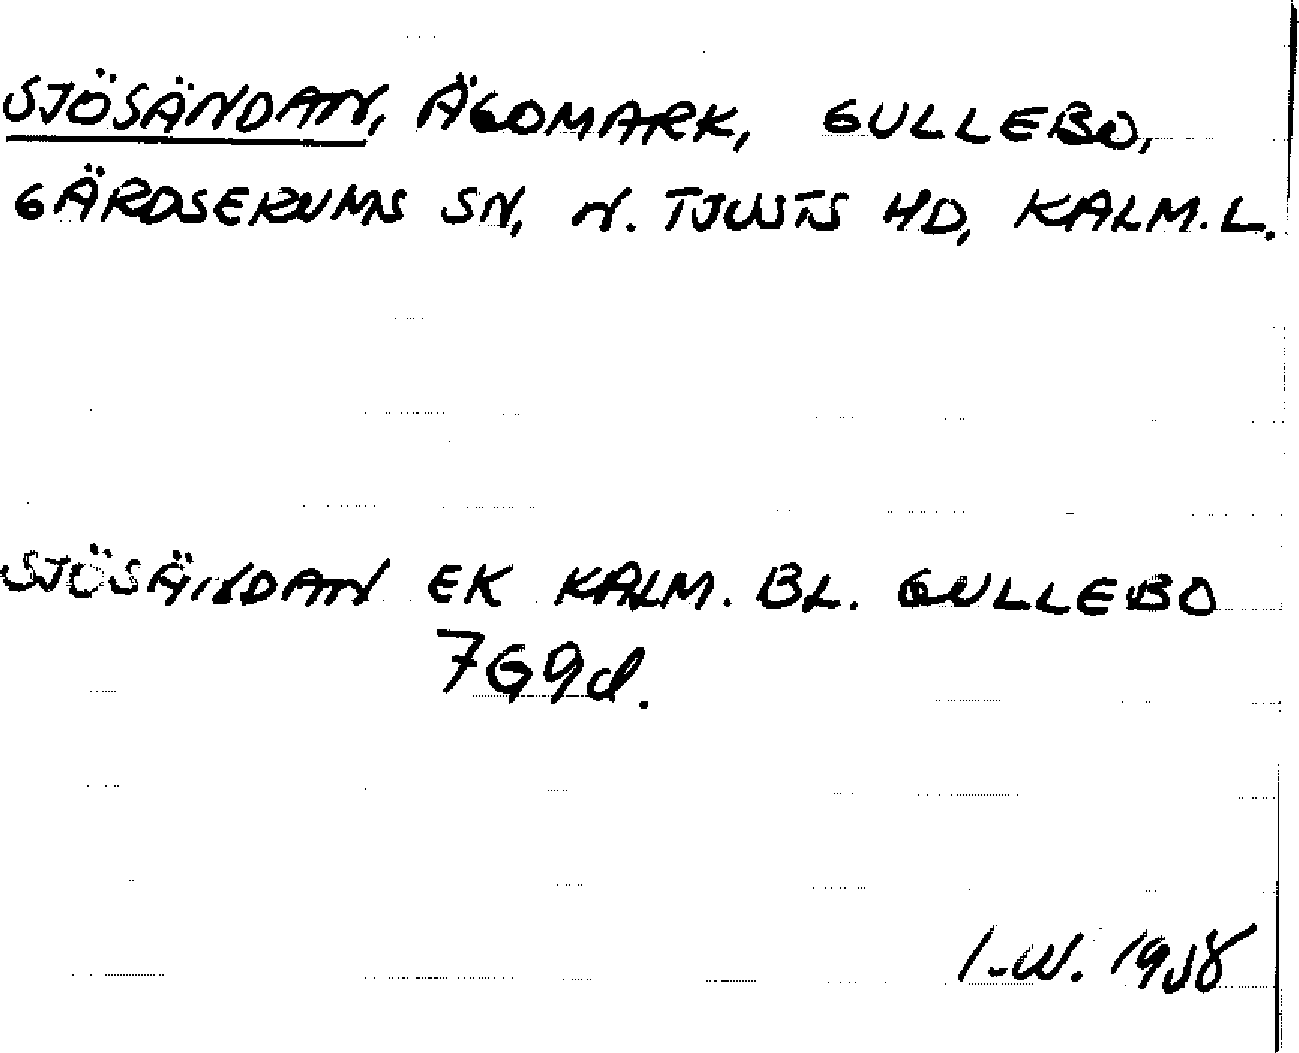 SJÖSÄNDAN, ÄGOMARK, GULLEBO,
GÄRDSERUMS SN, N. TJUSTS HD, KALM. L.
SJÖSÄNDAN EK KALM. BL. GULLEBO
7G9d.
I.W. 1958